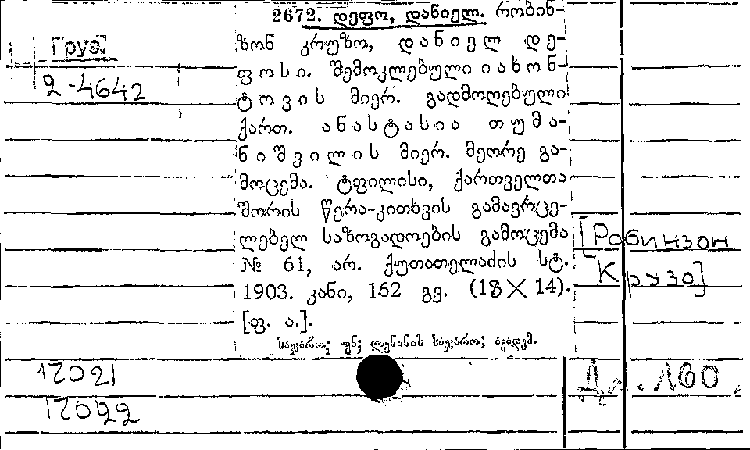 2672. დეფო, დანიელ. რობინ-
ზონ კრუზო, დანიელ დე-
ფოსი. შემოკლებული იახონ-
ტოვის მიერ. გადმოღებული
ქართ. ანასტასია თუმა-
ნიშვილის მიერ. მეორე გა-
მოცემა. ტფილისი, ქართველთა
შორის წერა-კითხვის გამავრცე-
ლებელ საზოგადოების გამოცემა
№ 61, არ. ქუთათელაძის სტ.
1903. კანი, 152 გვ. (18X14).
[ფ. ა.].
საჯარო; უნ; ლენინის საჯარო; აკადემ.
Груз.
2-4642
[Робинзон
Крузо]
12021
12022